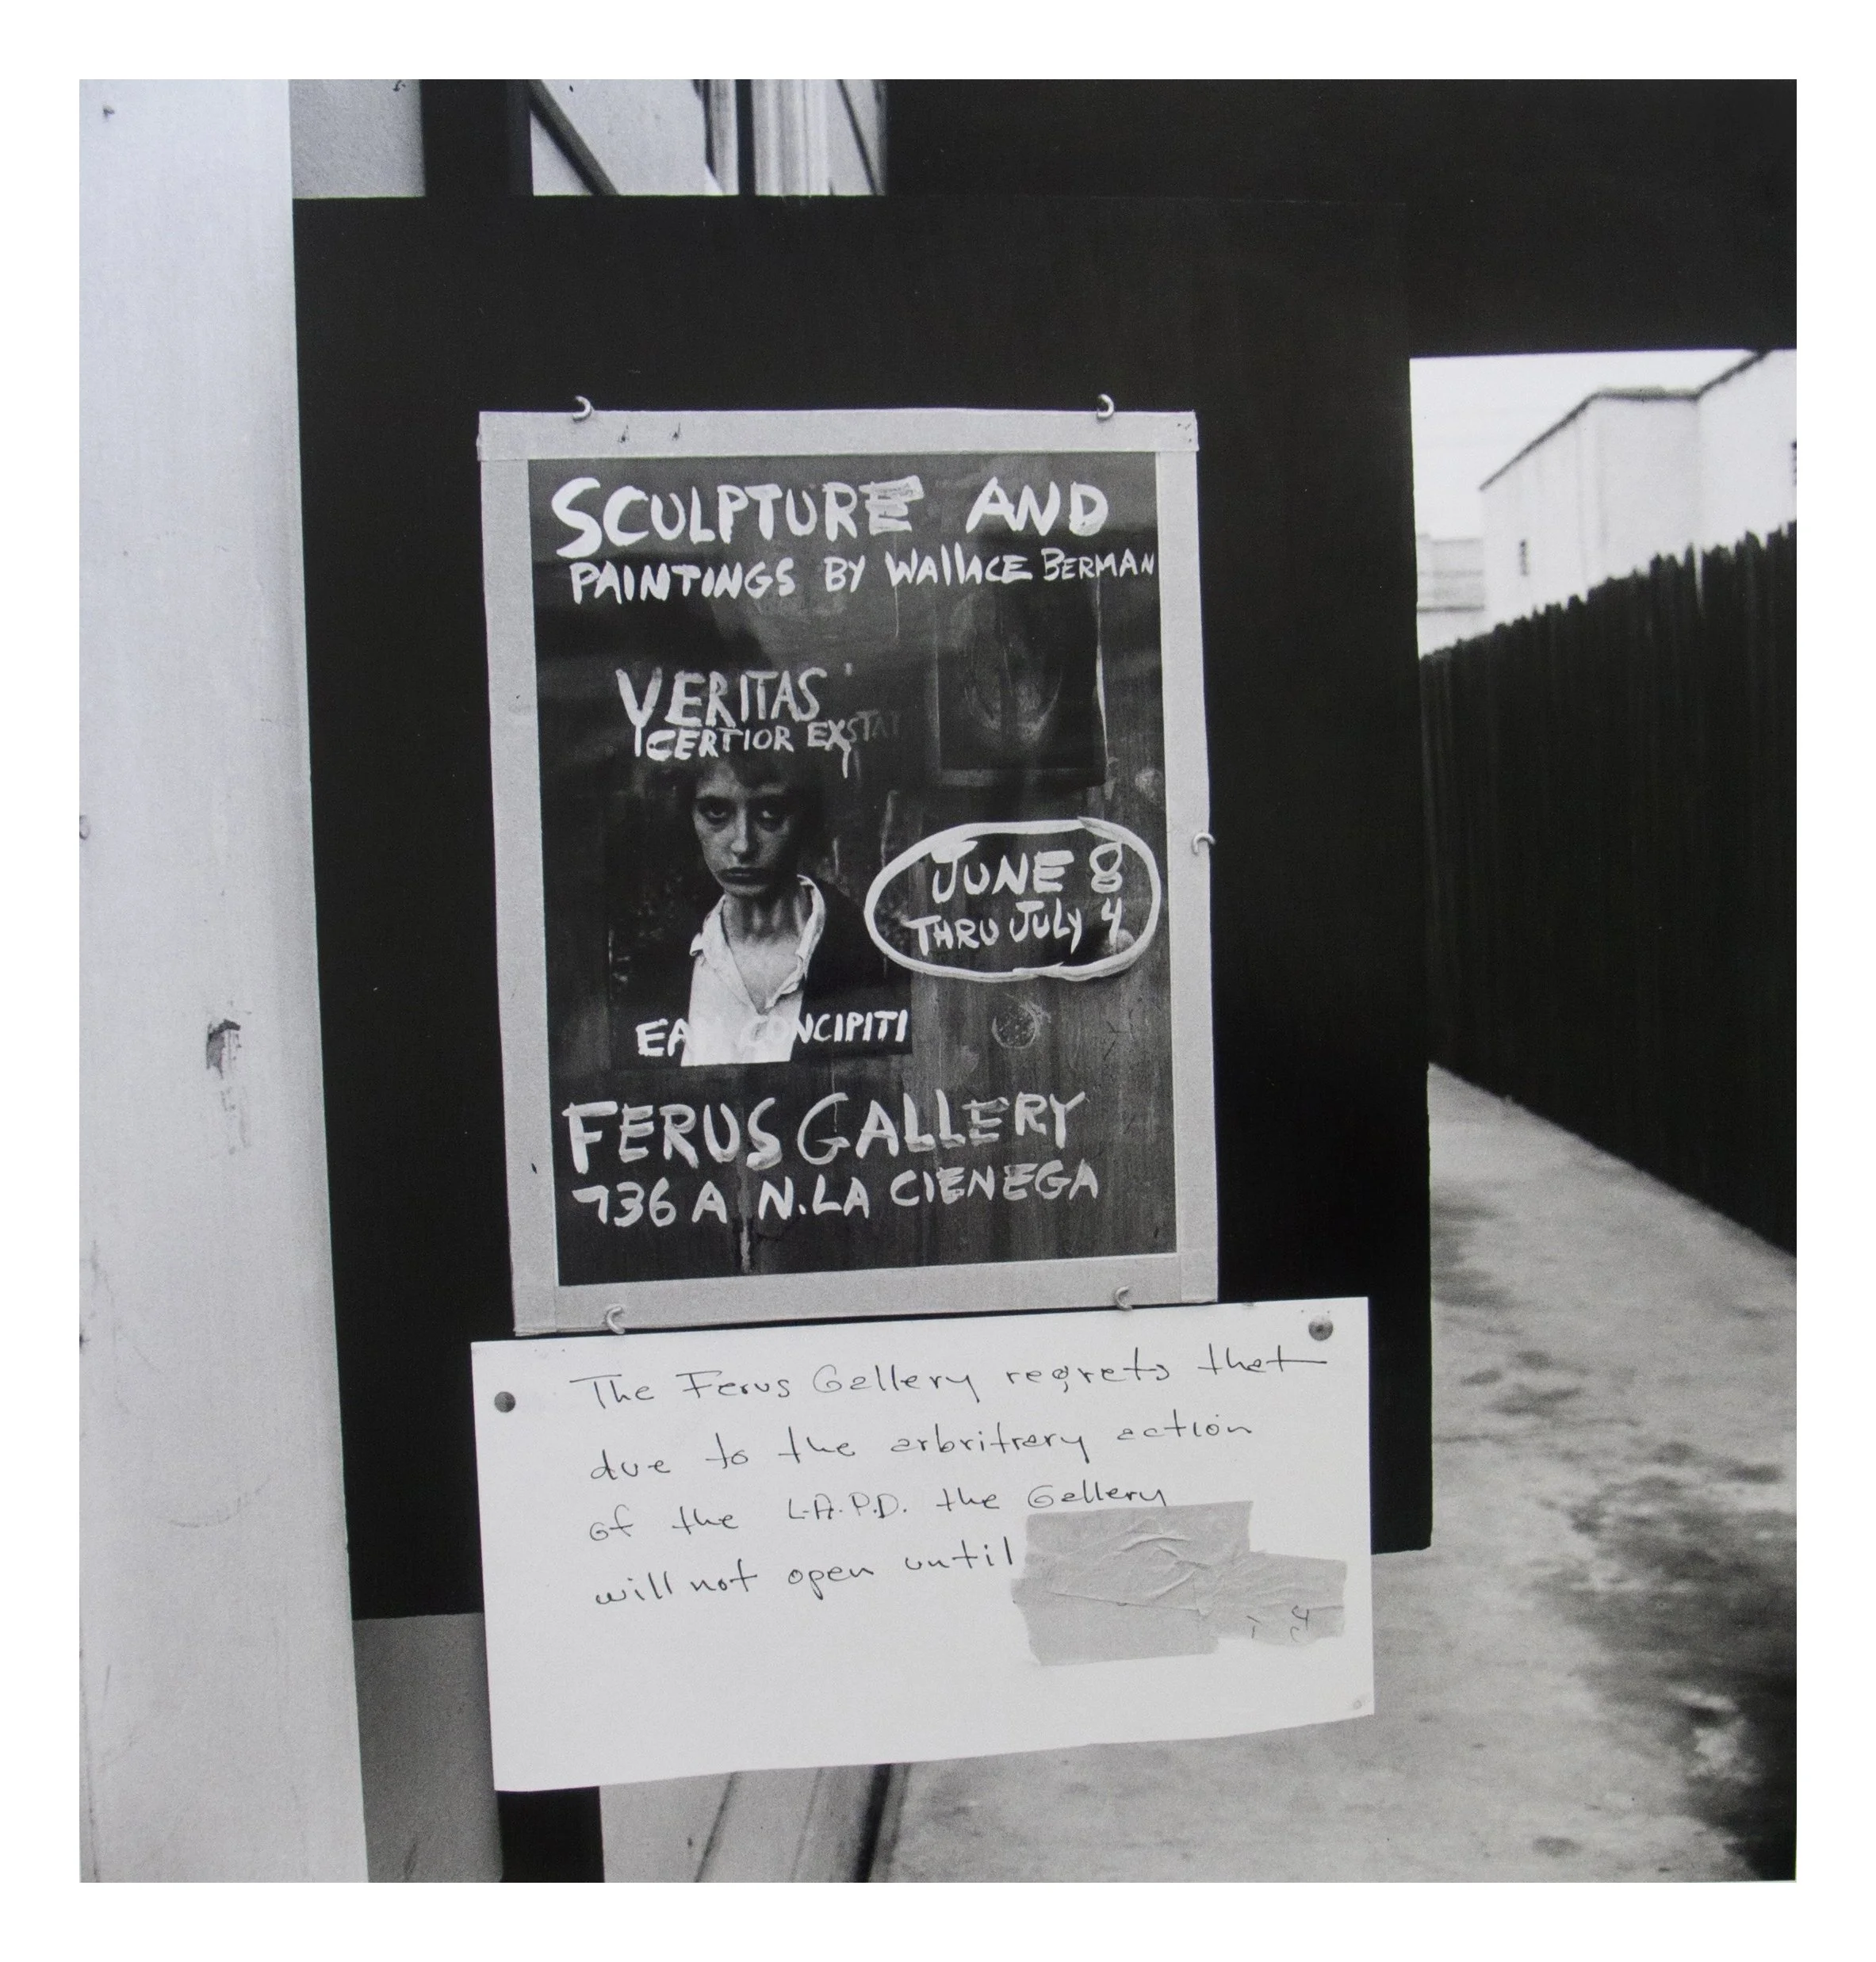 SCULPTURE AND
PAINTINGS BY WALLACE BERMAN
VERITAS
CERTIOR EXSTAT
JUNE 8
THRU JULY 4
CONCIPITI
FERUS GALLERY
736 A N. LA CIENEGA
The Ferus Gallery regrets that
due to the arbritrary action
of the L.A.P.D. the Gallery
will not open until